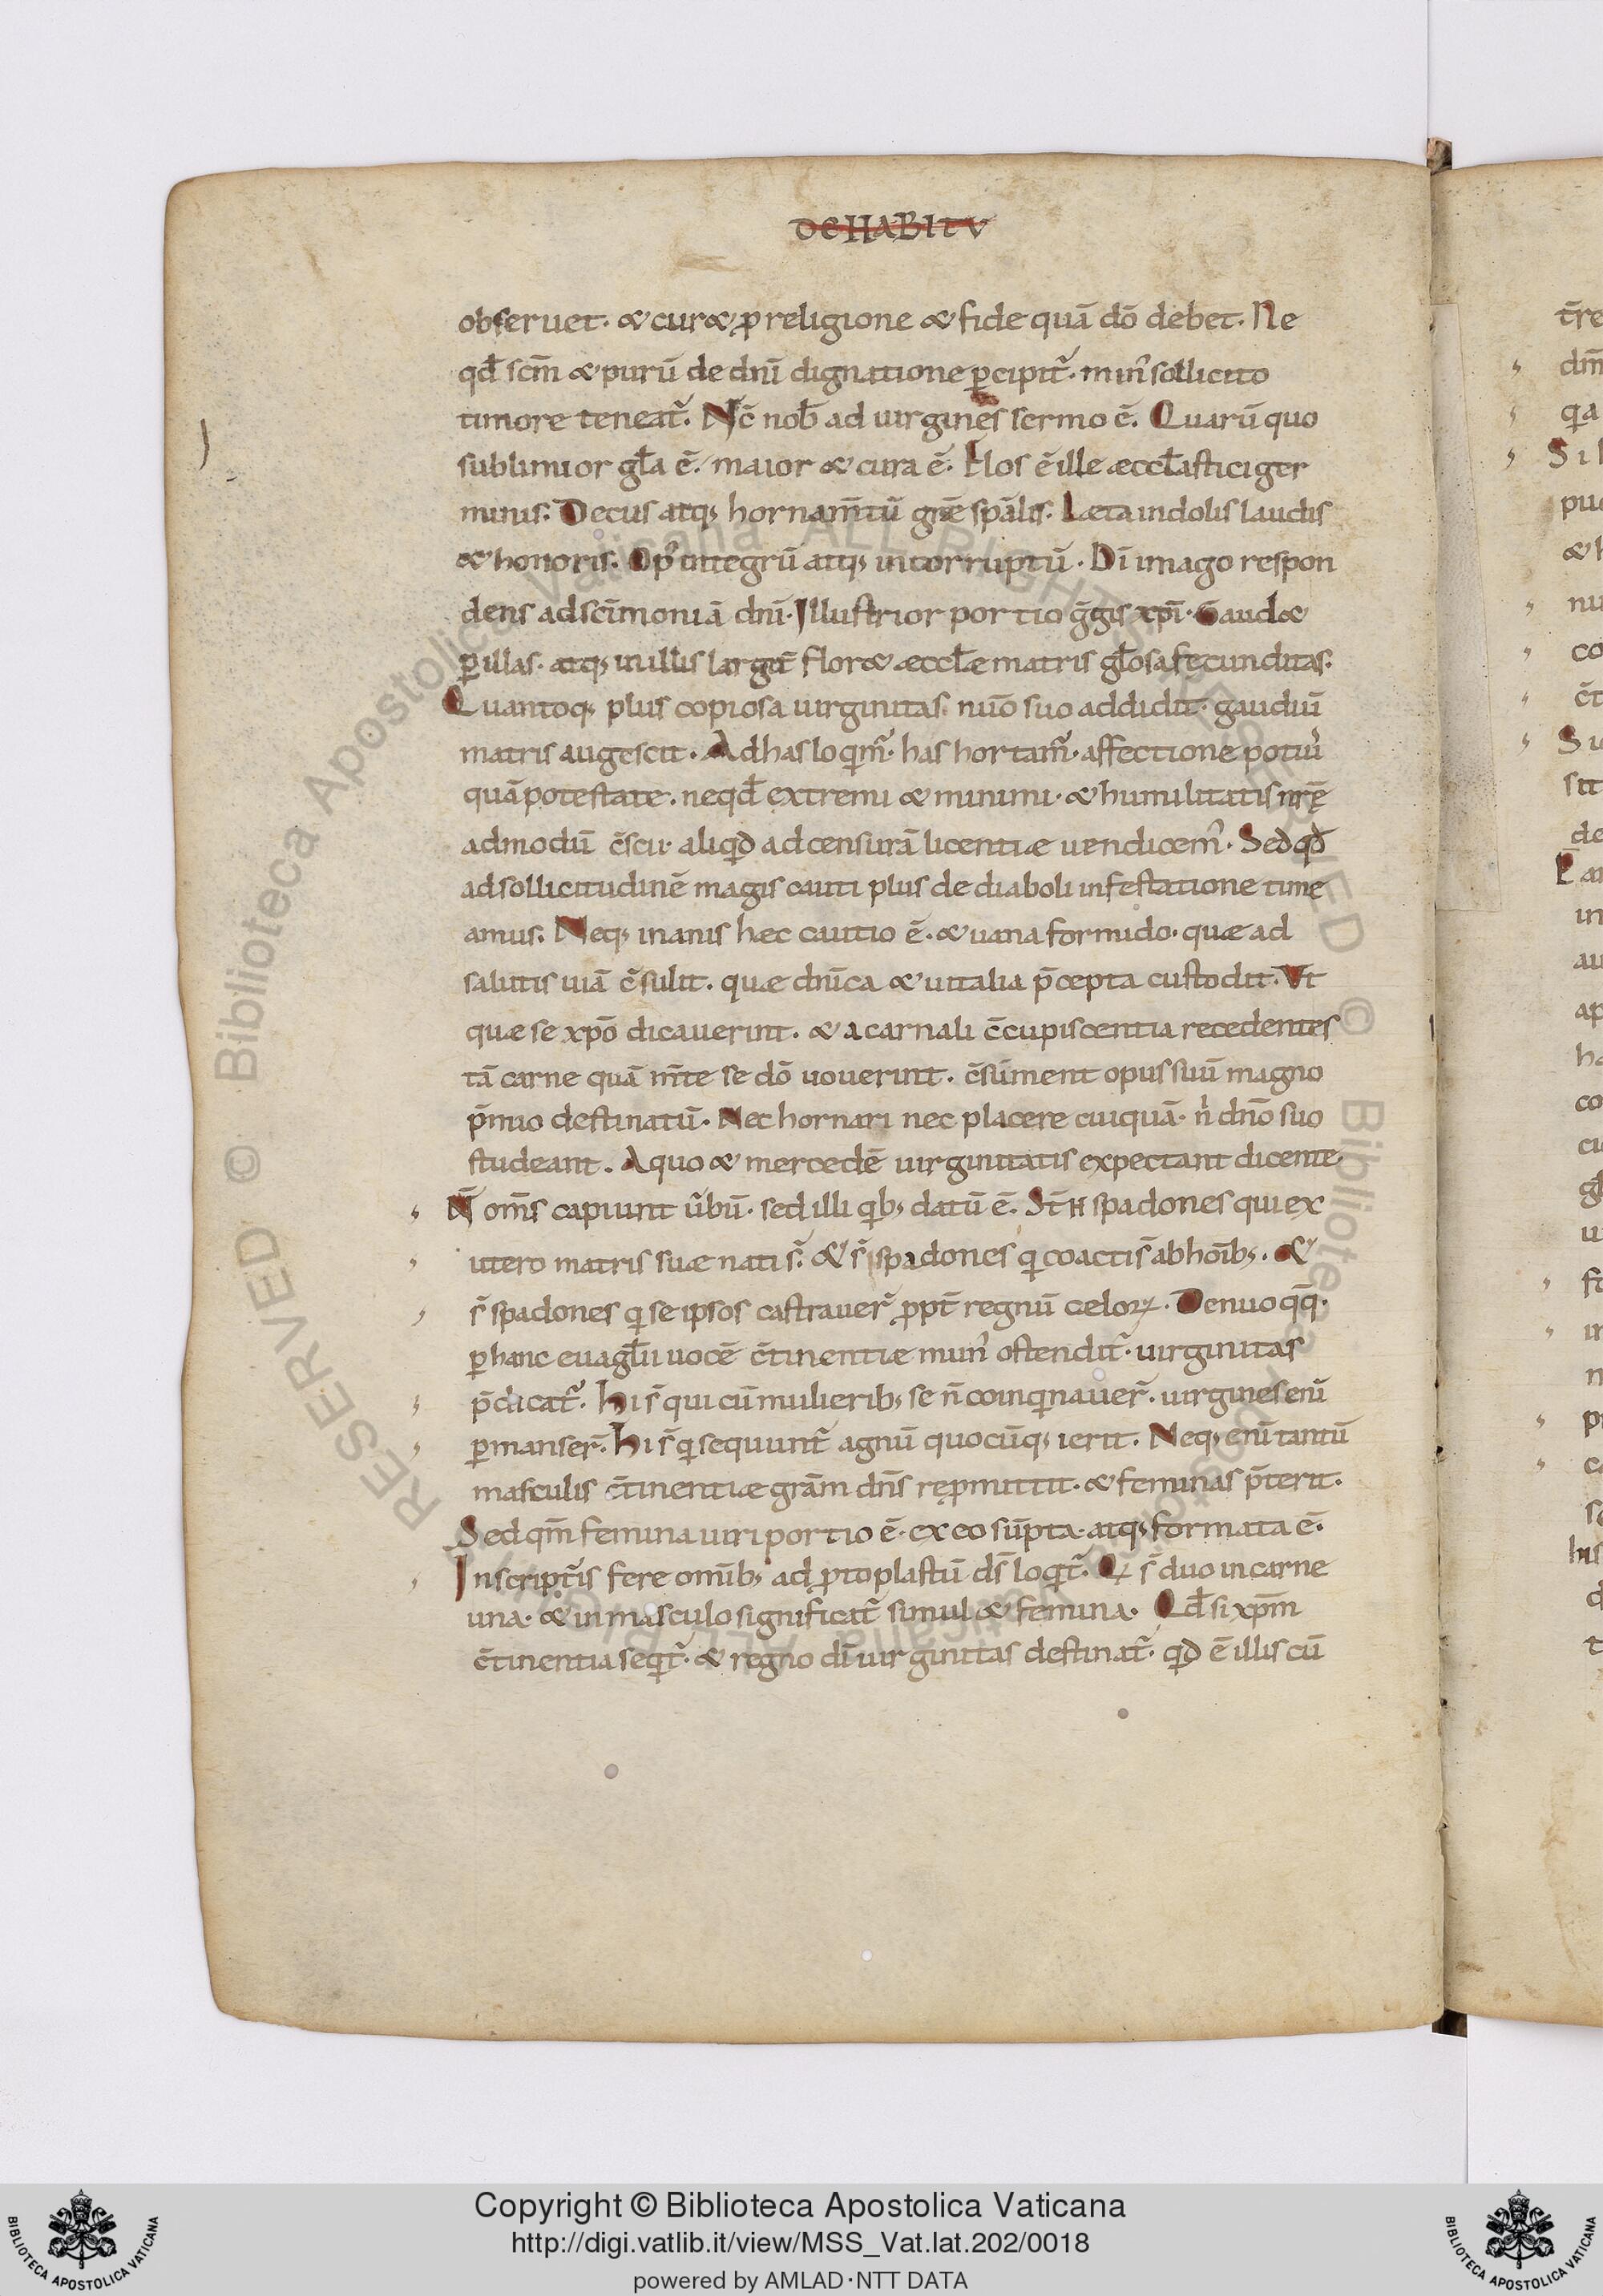 DE HABITV
obseruet. & cur& p religione & fide quā dō debet. Ne
qđ scm̄ & purū de dnī dignatione ꝑcipit᷑. min᷒ sollicito
timore teneat᷑. Nc̄ nob̄ ad uirgines sermo ē. Quarū quo
sublimior gła ē. maior & cura ē. Flos ē ille æccłastici ger
minis. Decus atq; hornam̄tū grē spālis. Læta indolis laudis
& honoris. Op᷒ integrū atq; incorruptū. Dī imago respon
dens ad scīmoniā dnī. Illustrior portio gḡis xp̄i. Gaud&
ꝑ illas. atq; in illis largit̄ flor& æccłæ matris głosa fecunditas.
Quantoq; plus copiosa uirginitas nūo suo addidit. gaudiū
matris augescit. Ad has loqim᷑. has hortam᷑. affectione poti᷒
quā potestate. neqđ extremi & minimi. & humilitatis nrē
admodū c̄scii. aliqid ad censurā licentiæ uendicem᷒. Sed qđ
ad sollicitudinē magis cauti plus de diaboli infestatione time
amus. Neq; inanis hæc cautio ē. & uana formido. quæ ad
salutis uiā c̄sulit. quæ dnīca & uitalia p̄cepta custodit. Vt
quæ se xp̄o dicauerint. & a carnali c̄cupiscentia recedentes
tā carne quā m̄te se dō uouerint. c̄sūment opus suū magno
p̄mio destinatū. Nec hornari nec placere cuiquā. n̄ dnō suo
studeant. A quo & mercedē uirginitatis expectant dicente
N̄ om̄s capiunt ūbū. sed illi qib; datū ē. St̄ H spadones qui ex
utero matris suæ nati s̄. & s̄ spadones qi coacti s̄ ab hoīb;. &
s̄ spadones qi se ipsos castrauer̄ ꝓpt̄ regnū celoꝝ. Denuo qq̄.
ꝑ hanc euagłii uocē c̄tinentiæ mun᷒ ostendit᷑. uirginitas
p̄dicat᷑. Hi s̄ qui cū mulierib; se n̄ coinqinauer̄. uirgines enī
ꝑmanser̄. Hi s̄ qi sequunt᷑ agnū quocūq; ierit. Neq; enī tantū
masculis c̄tinentiæ grām dn̄s repmittit. & feminas p̄terit.
Sed qm̄ femina uiri portio ē. ex eo sūpta atq; formata ē.
In script̄is fere omīb; ad ꝓtoplastū ds̄ loqit᷑. Qi s̄ duo in carne
una. & in masculo significat᷑ simul & femina. Qđ si xp̄m
c̄tinentia seqit᷑. & regno dī uirginitas destinat᷑. qid ē illis cū
t̄re
dm̄
qia
Si
pu
&
nu
co
c̄t
sit
de
in
au
ap
ha
co
Copyright © Biblioteca Apostolica Vaticana
http://digi.vatlib.it/view/MSS_Vat.lat.202/0018
powered by AMLAD·NTT DATA
BIBLIOTECA APOSTOLICA VATICANA
BIBLIOTECA APOSTOLICA VATICANA